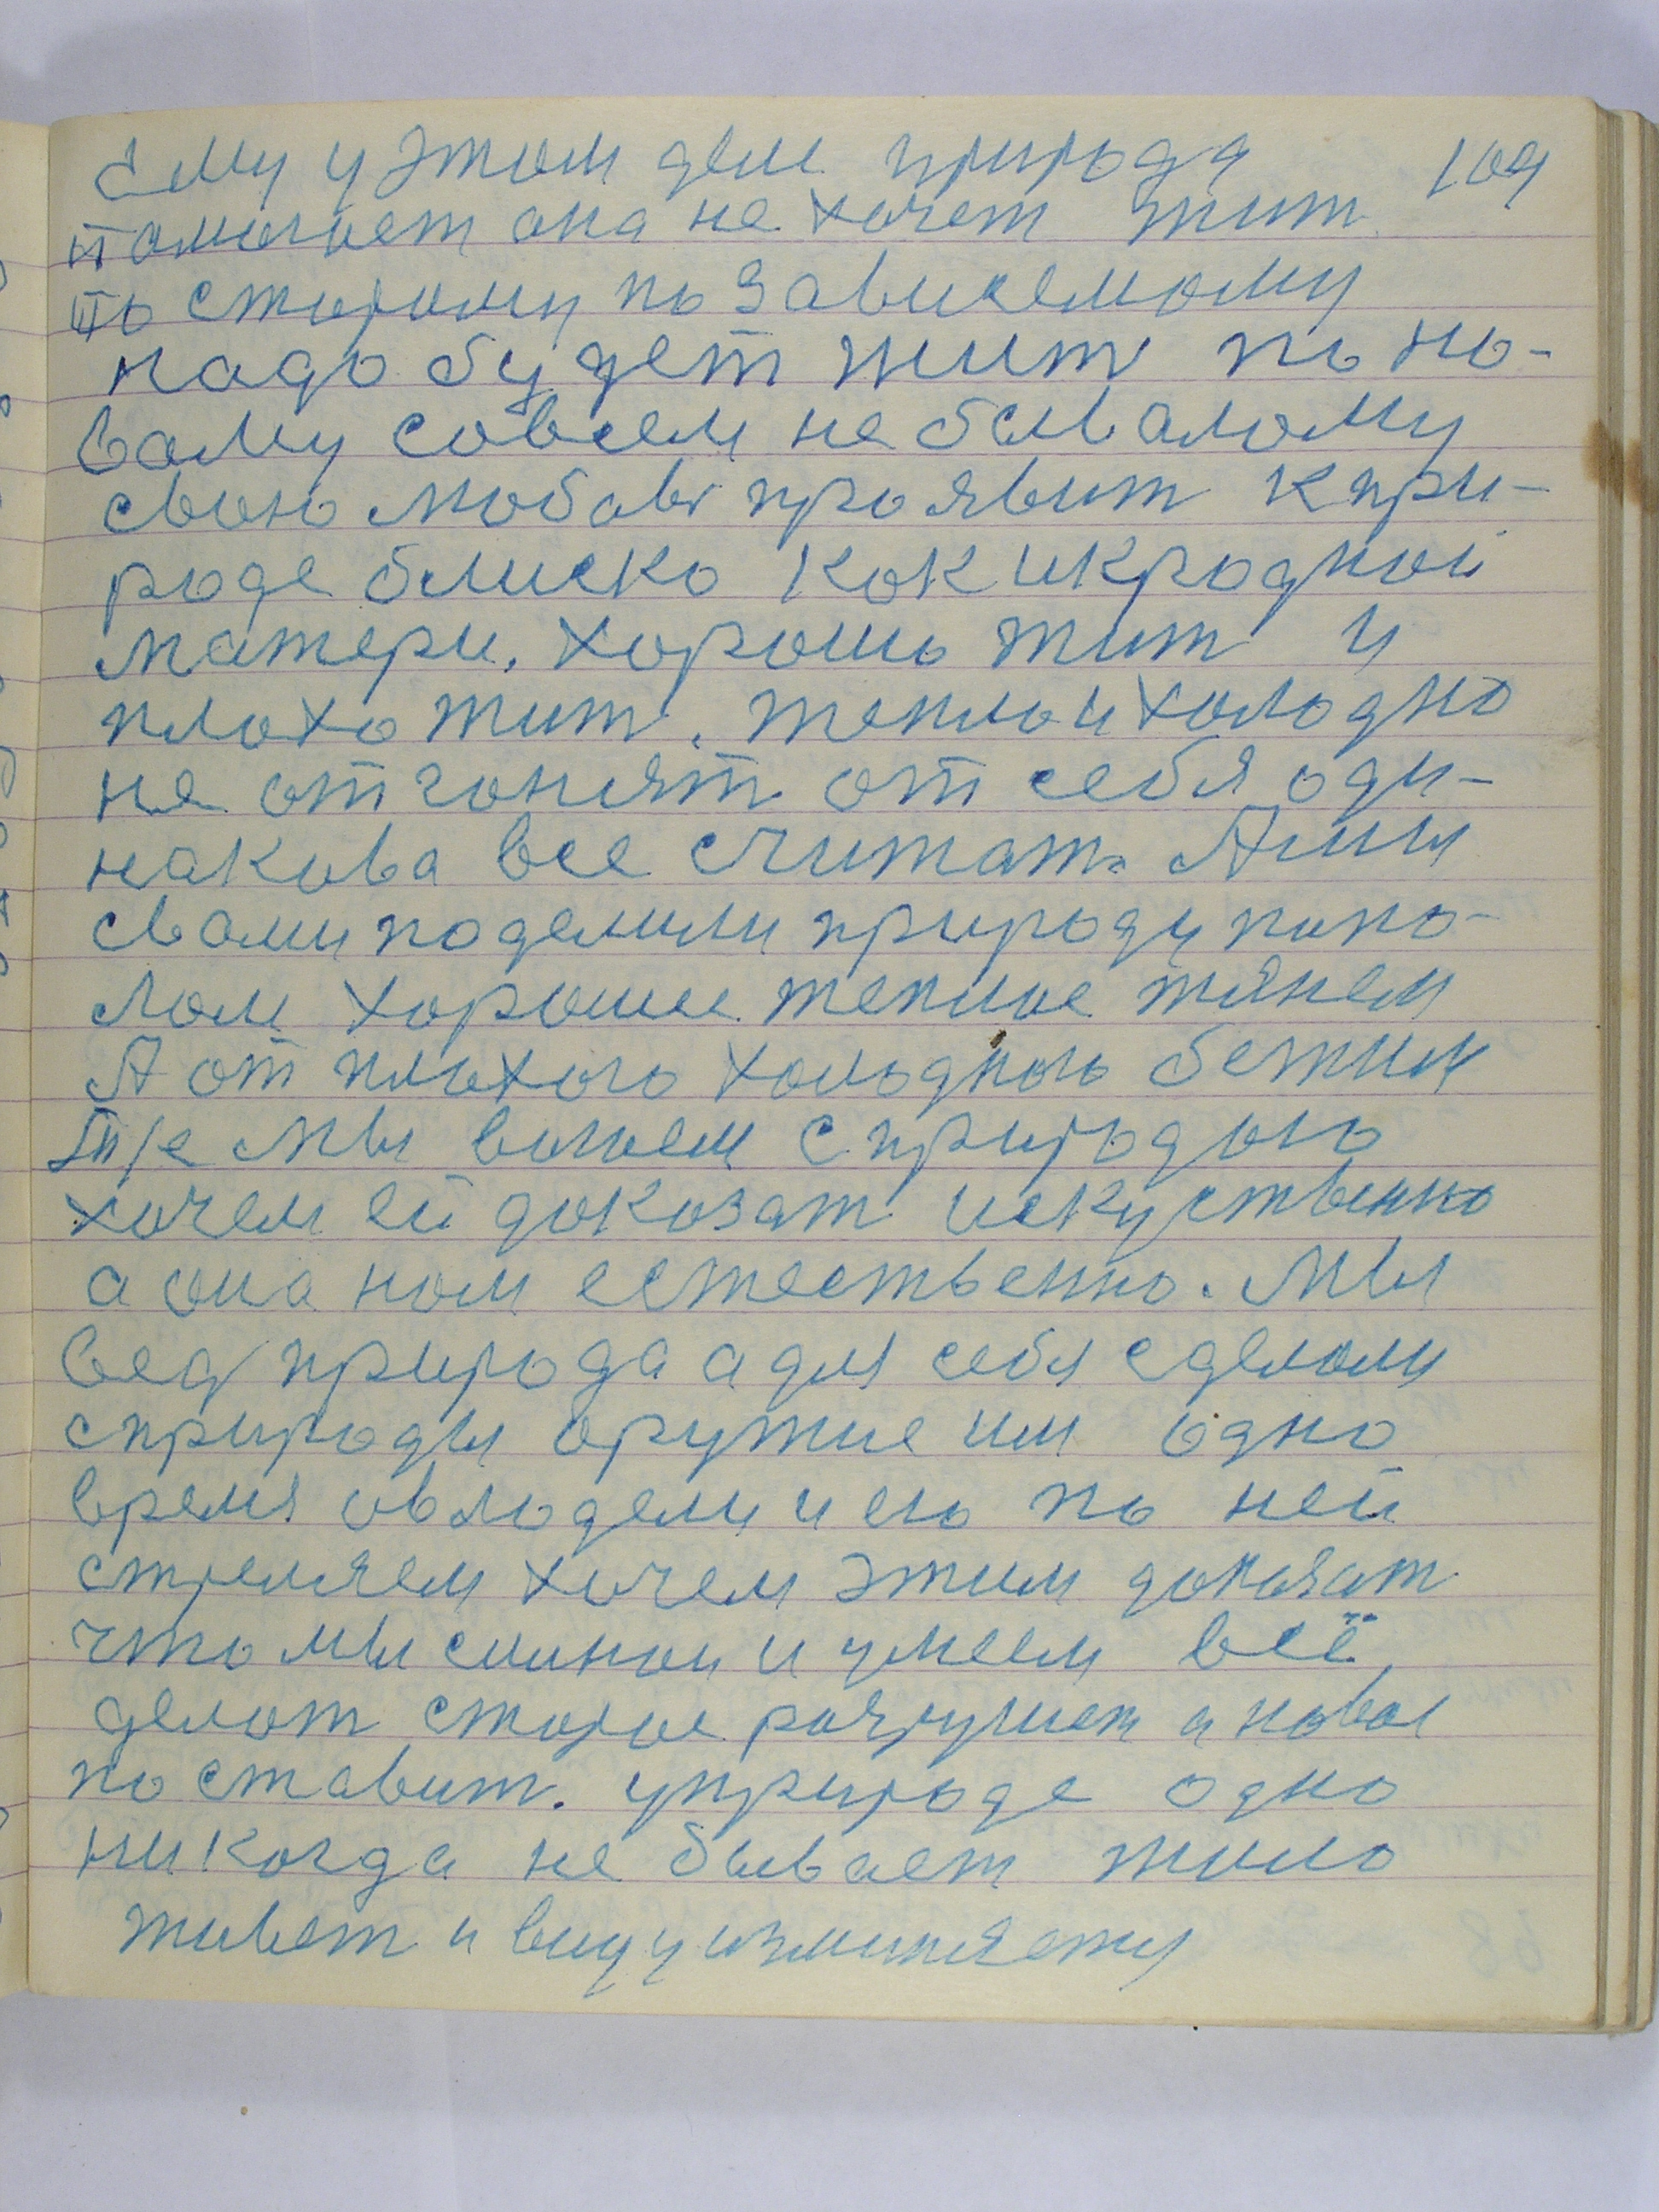 Ему у этом деле природа 109
помогает она не хочет жит
по старому по зависемому
надо будет жит по но-
вому совсем небывалому
свою любовь проявит к при-
роде блиско как и к родной
матери. Хорошо жит и
плохо жит. тепло и холодно
не отгонят от себя оди-
накова все считат. А мы
свами поделили природу попо-
лам хорошее теплое тянем
А от плохого холодного бежим
мы воюем с природою
хочем ей доказат искуственно
а она нам естественно. Мы
вед природа а для себя сделали
с природы оружие им одно
время овладели и его по ней
стреляем хочем этим доказат
что мы силнои и умеем всё
делат старое разрушает а новое
поставит. у природе одно
никогда не бывает жило
живет и виду изминяет